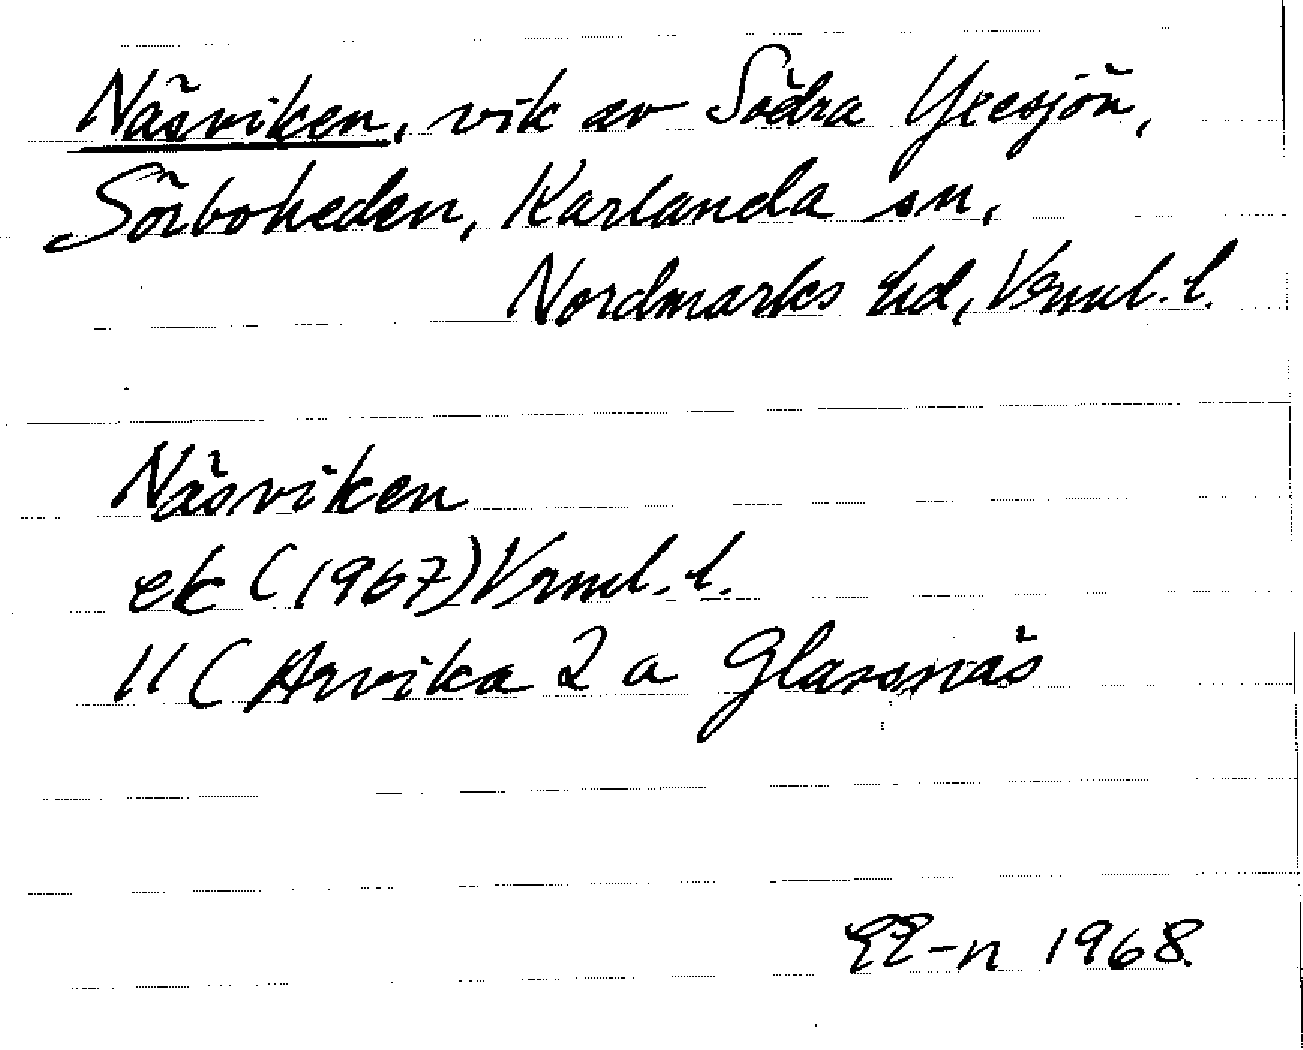 Näsviken, vik av Södra Ycesjön,
Sörboheden, Karlanda sn,
Nordmarks hd, Vrml. l.
Näsviken
ek (1967) Vrml. l.
11C Arvika 2 a Glassnäs
EE-n 1968.